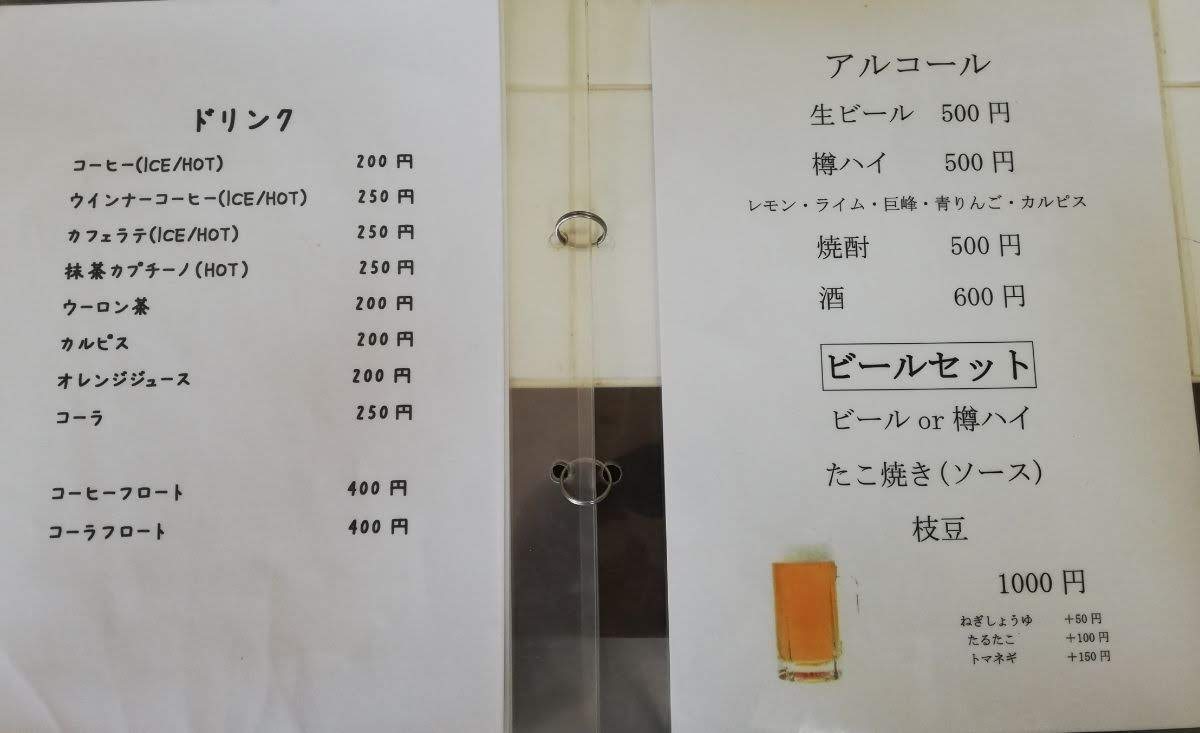 ドリンク
コーヒー(ICE/HOT) 200 円
ウインナーコーヒー(ICE/HOT) 250 円
カフェラテ(ICE/HOT) 250 円
抹茶カプチーノ(HOT) 250 円
ウーロン茶 200 円
カルピス 200 円
オレンジジュース 200 円
コーラ 250 円
コーヒーフロート 400 円
コーラフロート 400 円
アルコール
生ビール 500 円
樽ハイ 500 円
レモン・ライム・巨峰・青りんご・カルピス
焼酎 500 円
酒 600 円
ビールセット
ビール or 樽ハイ
たこ焼き(ソース)
枝豆
1000 円
ねぎしょうゆ +50 円
たるたこ +100 円
トマネギ +150 円